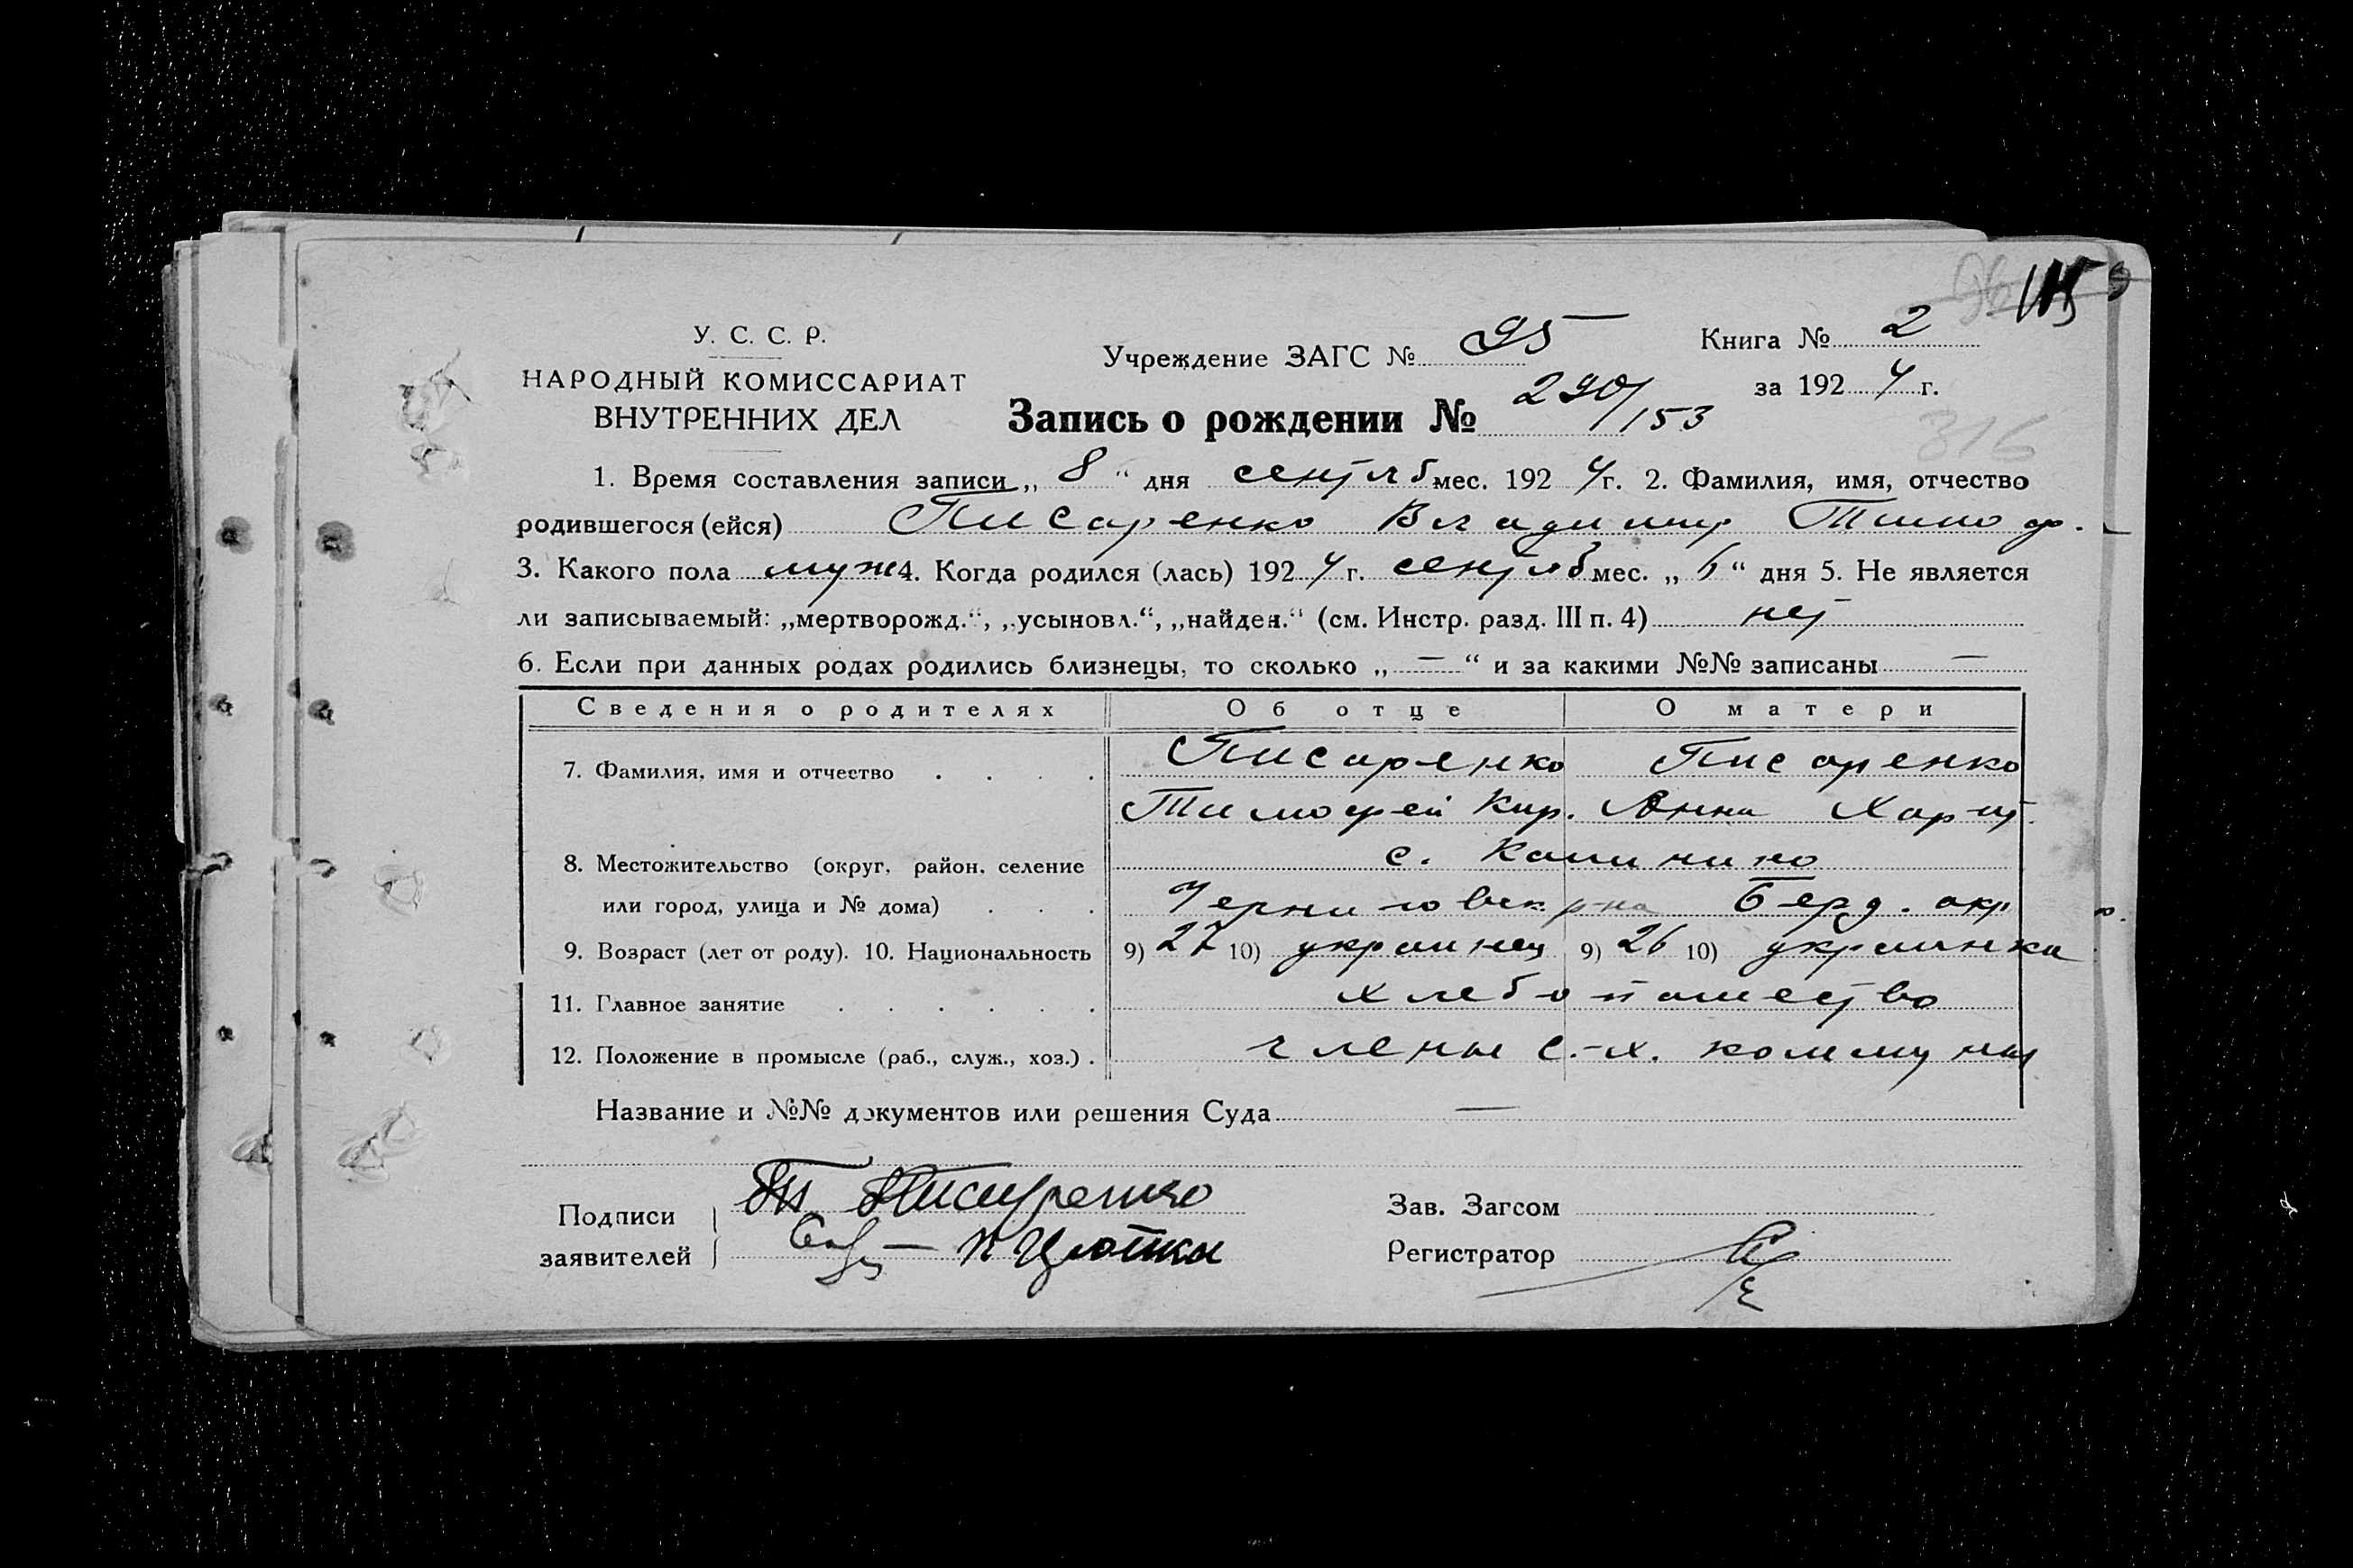 У. С. С. Р.
НАРОДНЫЙ КОМИССАРИАТ
ВНУТРЕННИХ ДЕЛ
Учреждение ЗАГС № 95
Книга № 2
за 192 4 г.
Запись о рождении № 290/153
316
1. Время составления записи „ 8 “ дня сентяб мес. 192 4 г. 2. Фамилия, имя, отчество
родившегося (ейся) Писаренко Владимир Тимоф.
3. Какого пола муж 4. Когда родился (лась) 192 4 г. сентяб мес. „ 6 “ дня 5. Не является
ли записываемый: „мертворожд.“, „усыновл.“, „найден.“ (см. Инстр. разд. III п. 4) нет
6. Если при данных родах родились близнецы, то сколько „ — “ и за какими №№ записаны —
Сведения о родителях Об отце О матери
7. Фамилия, имя и отчество . . . . Писаренко Писаренко
Тимофей Кир. Анна Харит.
8. Местожительство (округ, район, селение с. Калинино
или город, улица и № дома) . . . Черниговск. р-на Берд. окр
9. Возраст (лет от роду). 10. Национальность 9) 27 10) украинец 9) 26 10) украинка
11. Главное занятие . . . . . . хлебопашество
12. Положение в промысле (раб., служ., хоз.) . члены с.-х. коммуны
Название и №№ документов или решения Суда —
Подписи Т Писаренко
заявителей
Зав. Загсом
Регистратор